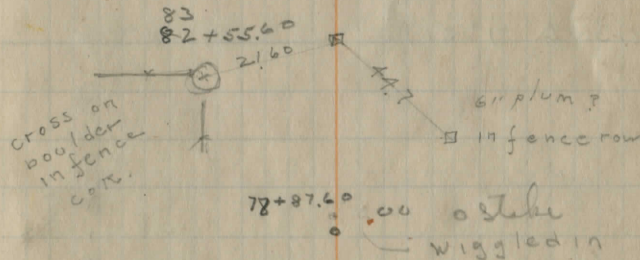 83
82 + 55.60
21.60
44.7
cross on
boulder
in fence
cor.
6" plum ?
in fence row
78 + 87.60
.00 o stake
wiggled in